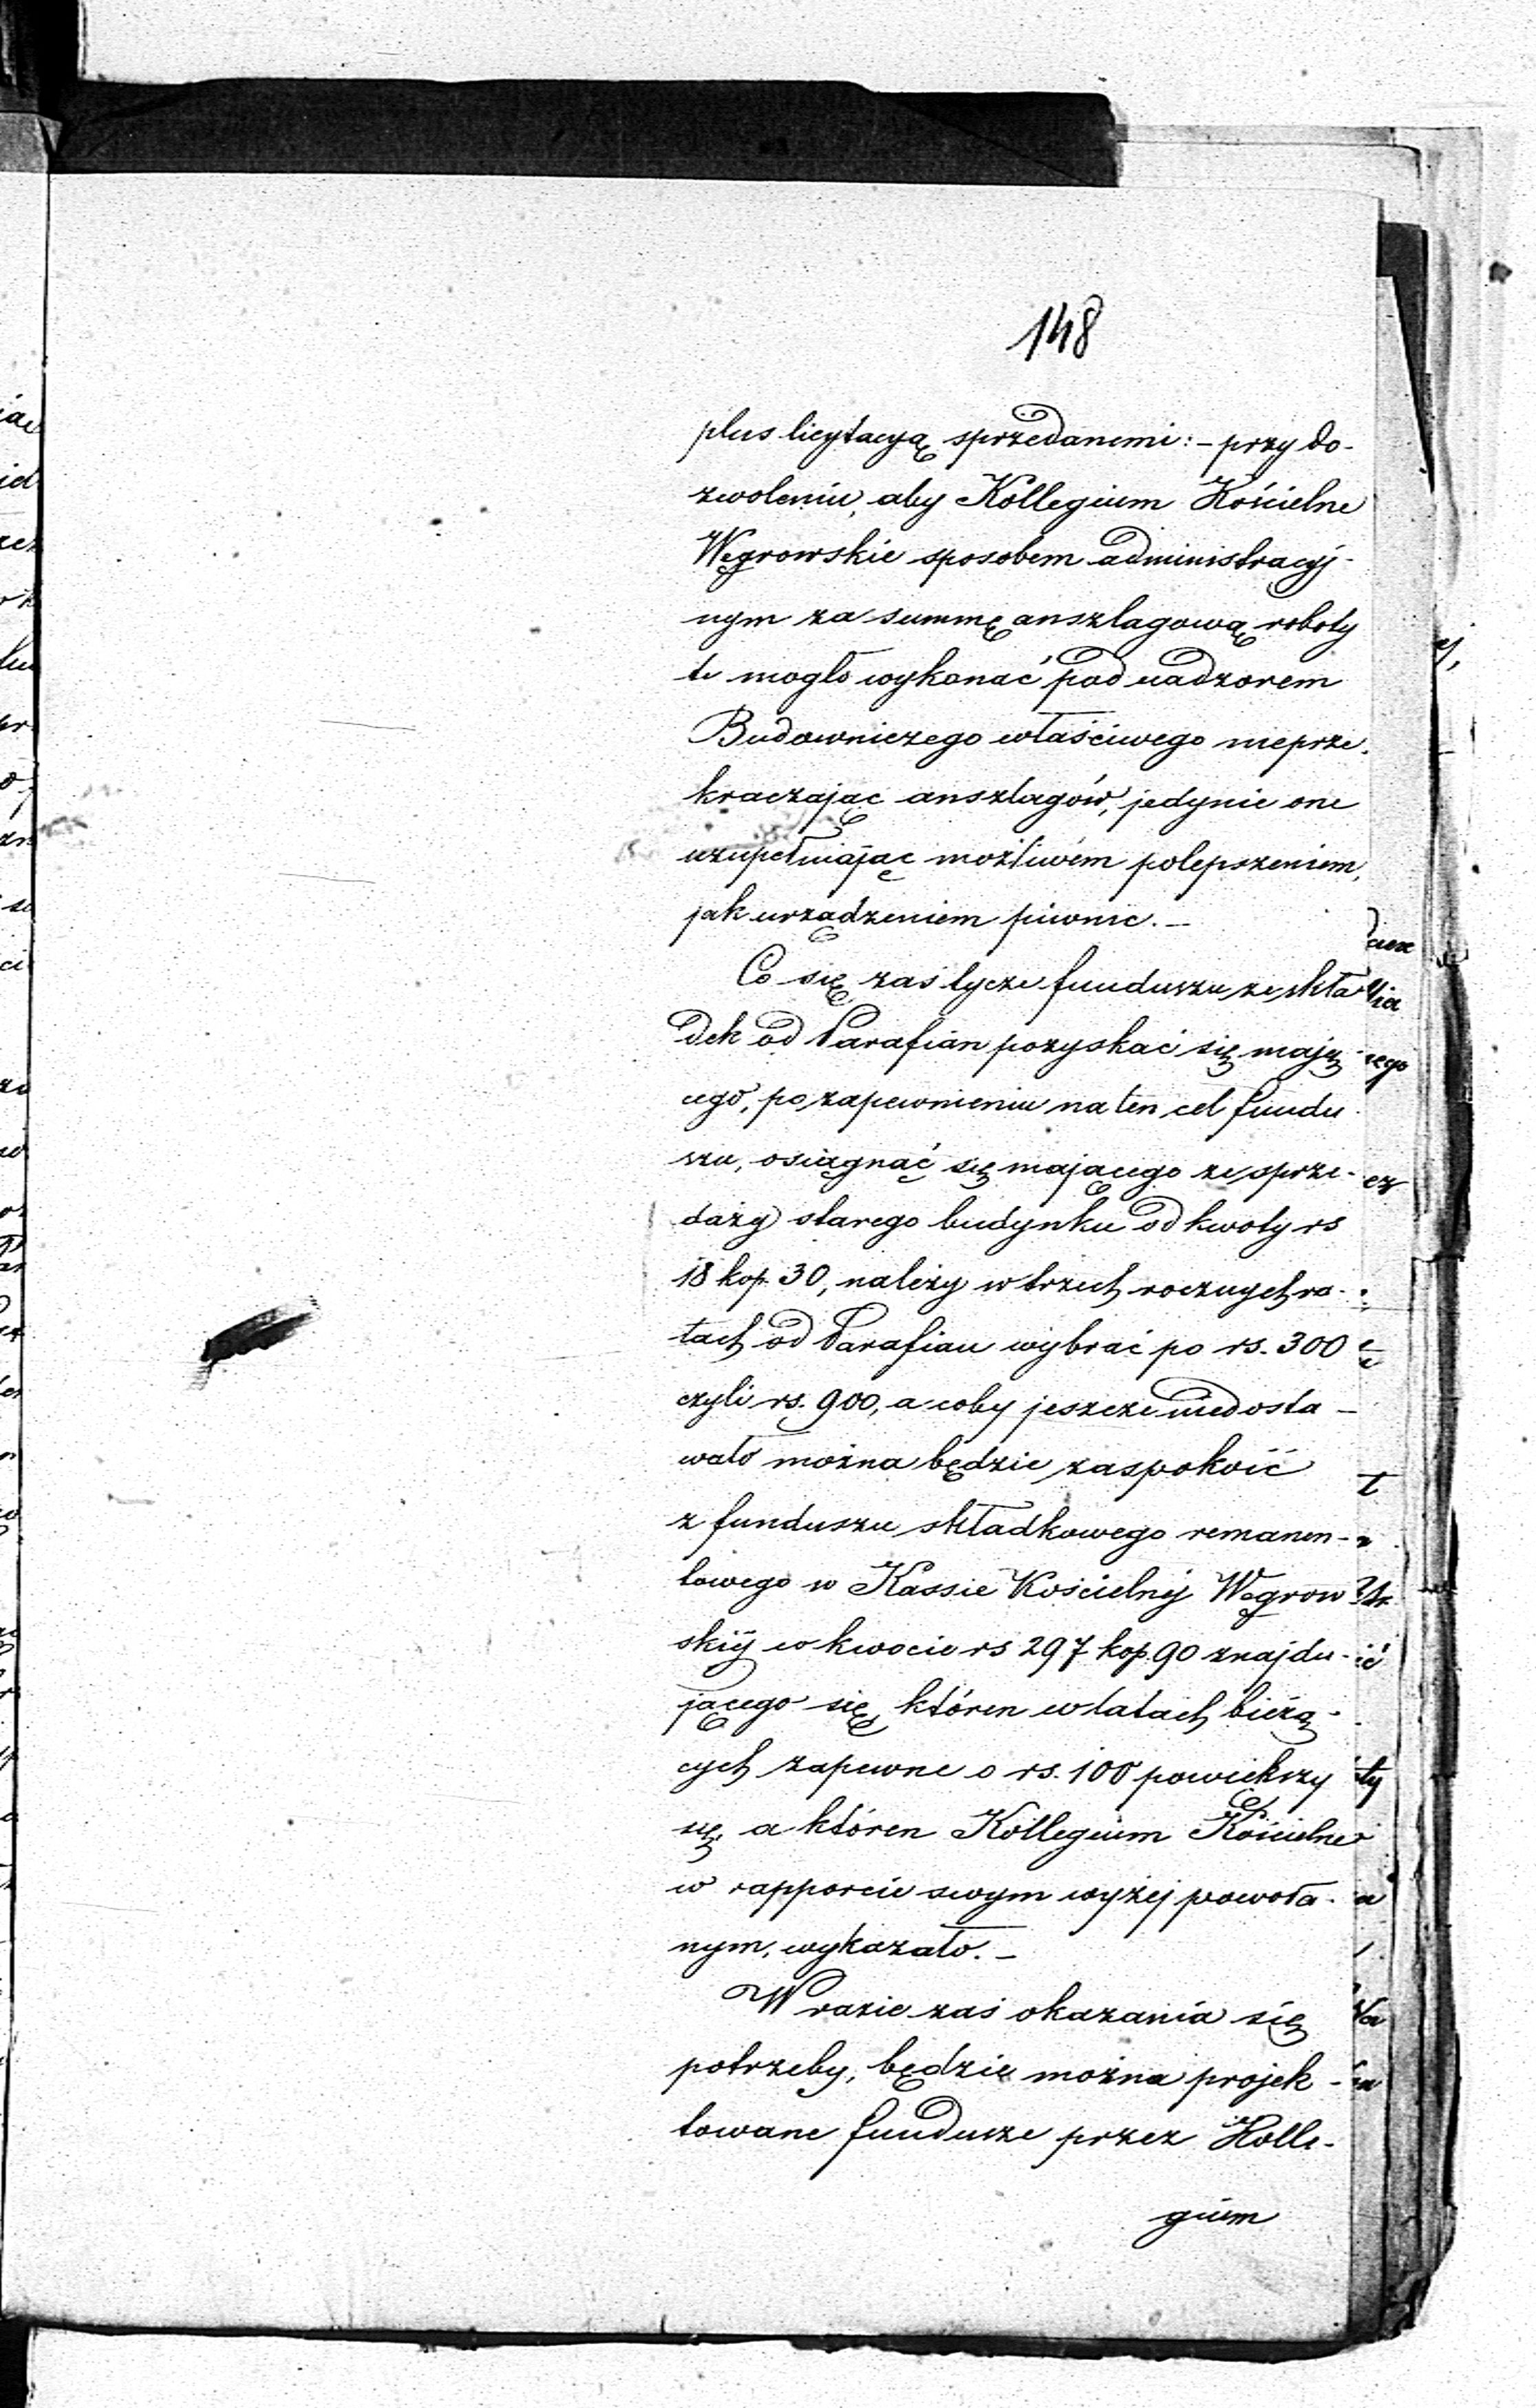 148
plus licytacyą sprzedanemi: - przy do-
zwoleniu, aby Kollegium Kościelne
Węgrowskie sposobem administracyj-
nym za summę anszlagową roboty
te mogło wykonać pod nadzorem
Budowniczego właściwego nieprze-
kraczając anszlagów, jedynie one
uzupełniając możliwém polepszeniem,
jak urządzeniem piwnic. -
Co się zaś tycze funduszu ze skła
dek od Parafian pozyskać się mają
cego, po zapewnieniu na ten cel fundu
szu, osiągnąć się mającego ze sprze-
daży starego budynku od kwoty rs
18 kop. 30, należy w trzech rocznych ra-
tach od Parafian wybrać po rs. 300
czyli rs. 900, a coby jeszcze niedosta-
wało można będzie zaspokoić
z funduszu składkowego remanen-
towego w Kassie Kościelnéj Węgrow
skiéj w kwocie rs 297 kop. 90 znajdu-
jącego się, któren w latach bieżą-
cych zapewne o rs. 100 powiększy
się, a któren Kollegium Kościelne
w rapporcie swym wyżej powoła-
nym, wykazało. -
W razie zaś okazania się
potrzeby, będzie można projek-
towane fundusze przez Kolle-
gium